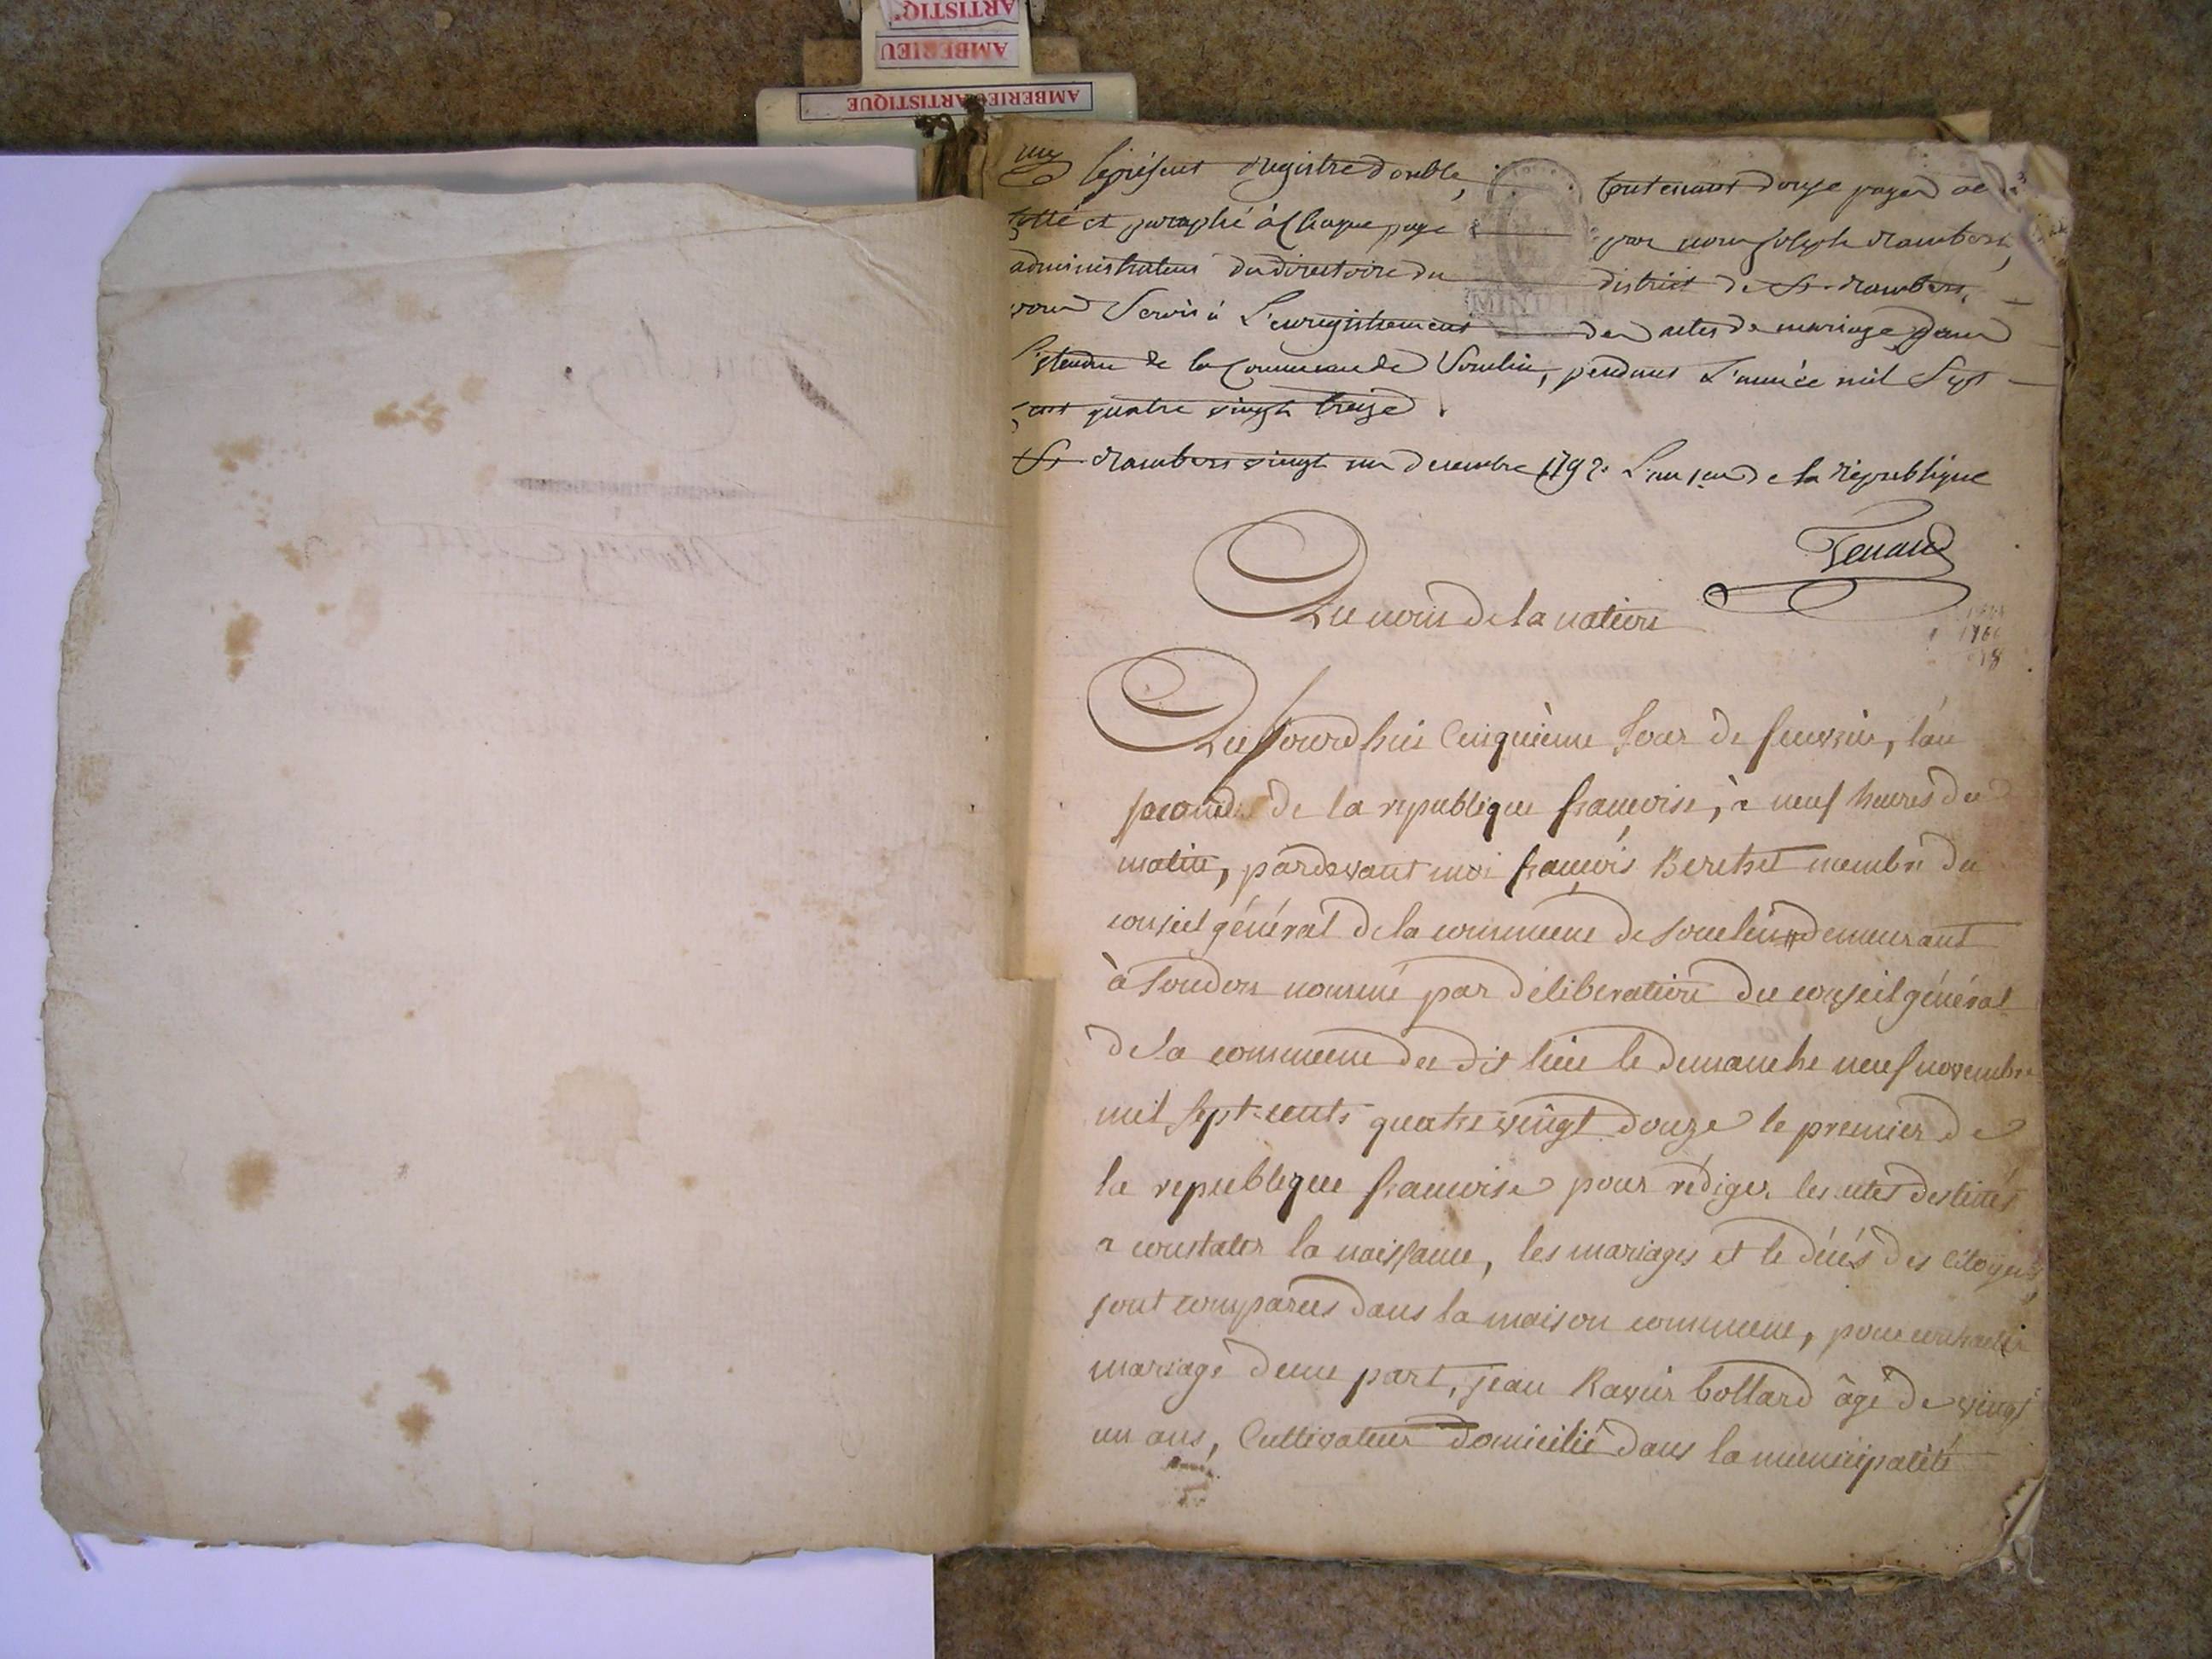 ARTISTIQ
AMBERIEU
AMBERIEU ARTISTIQUE
Le présent registre double, contenant douze pages a été
cotté et paraphé à chaque page par nous Joseph
administrateur du directoire du district de St. Rambert,
pour servir à l'enregistrement des actes de mariage dans
l'étendue de la commune de Soulin, pendant l'année mil sept
cent quatre vingt treize.
St. Rambert vingt un decembre 1792. L'an 1er de la république
MINUTE
Tenand
Au nom de la nation
Aujourd'hui cinquième jour de fevrier, l'an
second de la republique françoise, à neuf heures du
matin, pardevant moi françois Berthet membre du
conseil général de la commune de soulin demeurant
à soudon nommé par déliberation du conseil général
de la commune du dit lieu le demanche neuf novembre
mil sept-cents quatre vingt douze le premier de
la republique françoise pour rédiger les actes destinés
a constater la naissance, les mariages et le décés des citoyens,
sont comparus dans la maison commune, pour contracter
mariage d'une part, jean Ravier bollard âgé de vingt
un ans, Cultivateur domicilié dans la municipalité